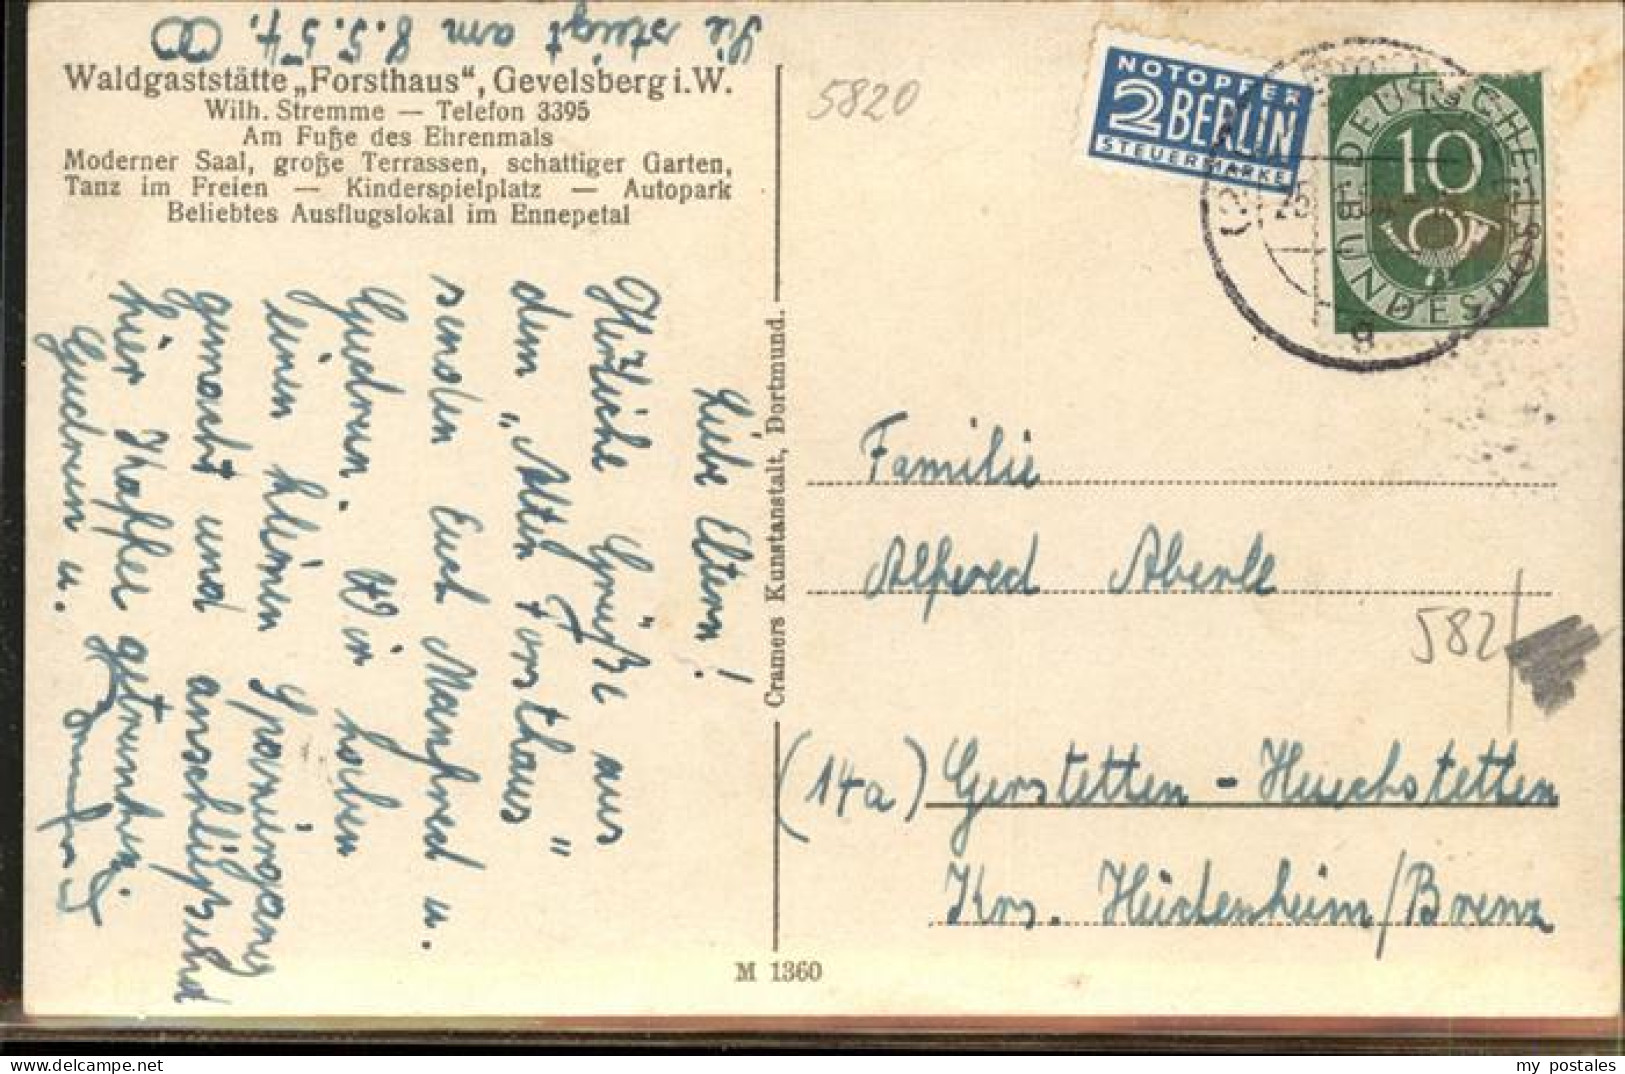 Sie steigt am 8.5.54.
Waldgaststätte „Forsthaus“, Gevelsberg i.W.
Wilh. Stremme — Telefon 3395
Am Fuße des Ehrenmals
Moderner Saal, große Terrassen, schattiger Garten,
Tanz im Freien — Kinderspielplatz — Autopark
Beliebtes Ausflugslokal im Ennepetal
Liebe Eltern!
Herzliche Grüße aus
dem „Alten Forsthaus"
senden Euch Manfred u.
Gudrun. Wir haben
einen kleinen Spaziergang
gemacht und anschließend
hier Kaffee getrunken.
Gudrun u.
Cramers Kunstanstalt, Dortmund.
M 1360
5820
NOTOPFER
2 BERLIN
STEUERMARKE
DEUTSCHE BUNDESPOST
10
g
Familie
Alfred Aberle
582
(14a) Gerstetten - Heuchstetten
Krs. Heidenheim/Brenz
my postales